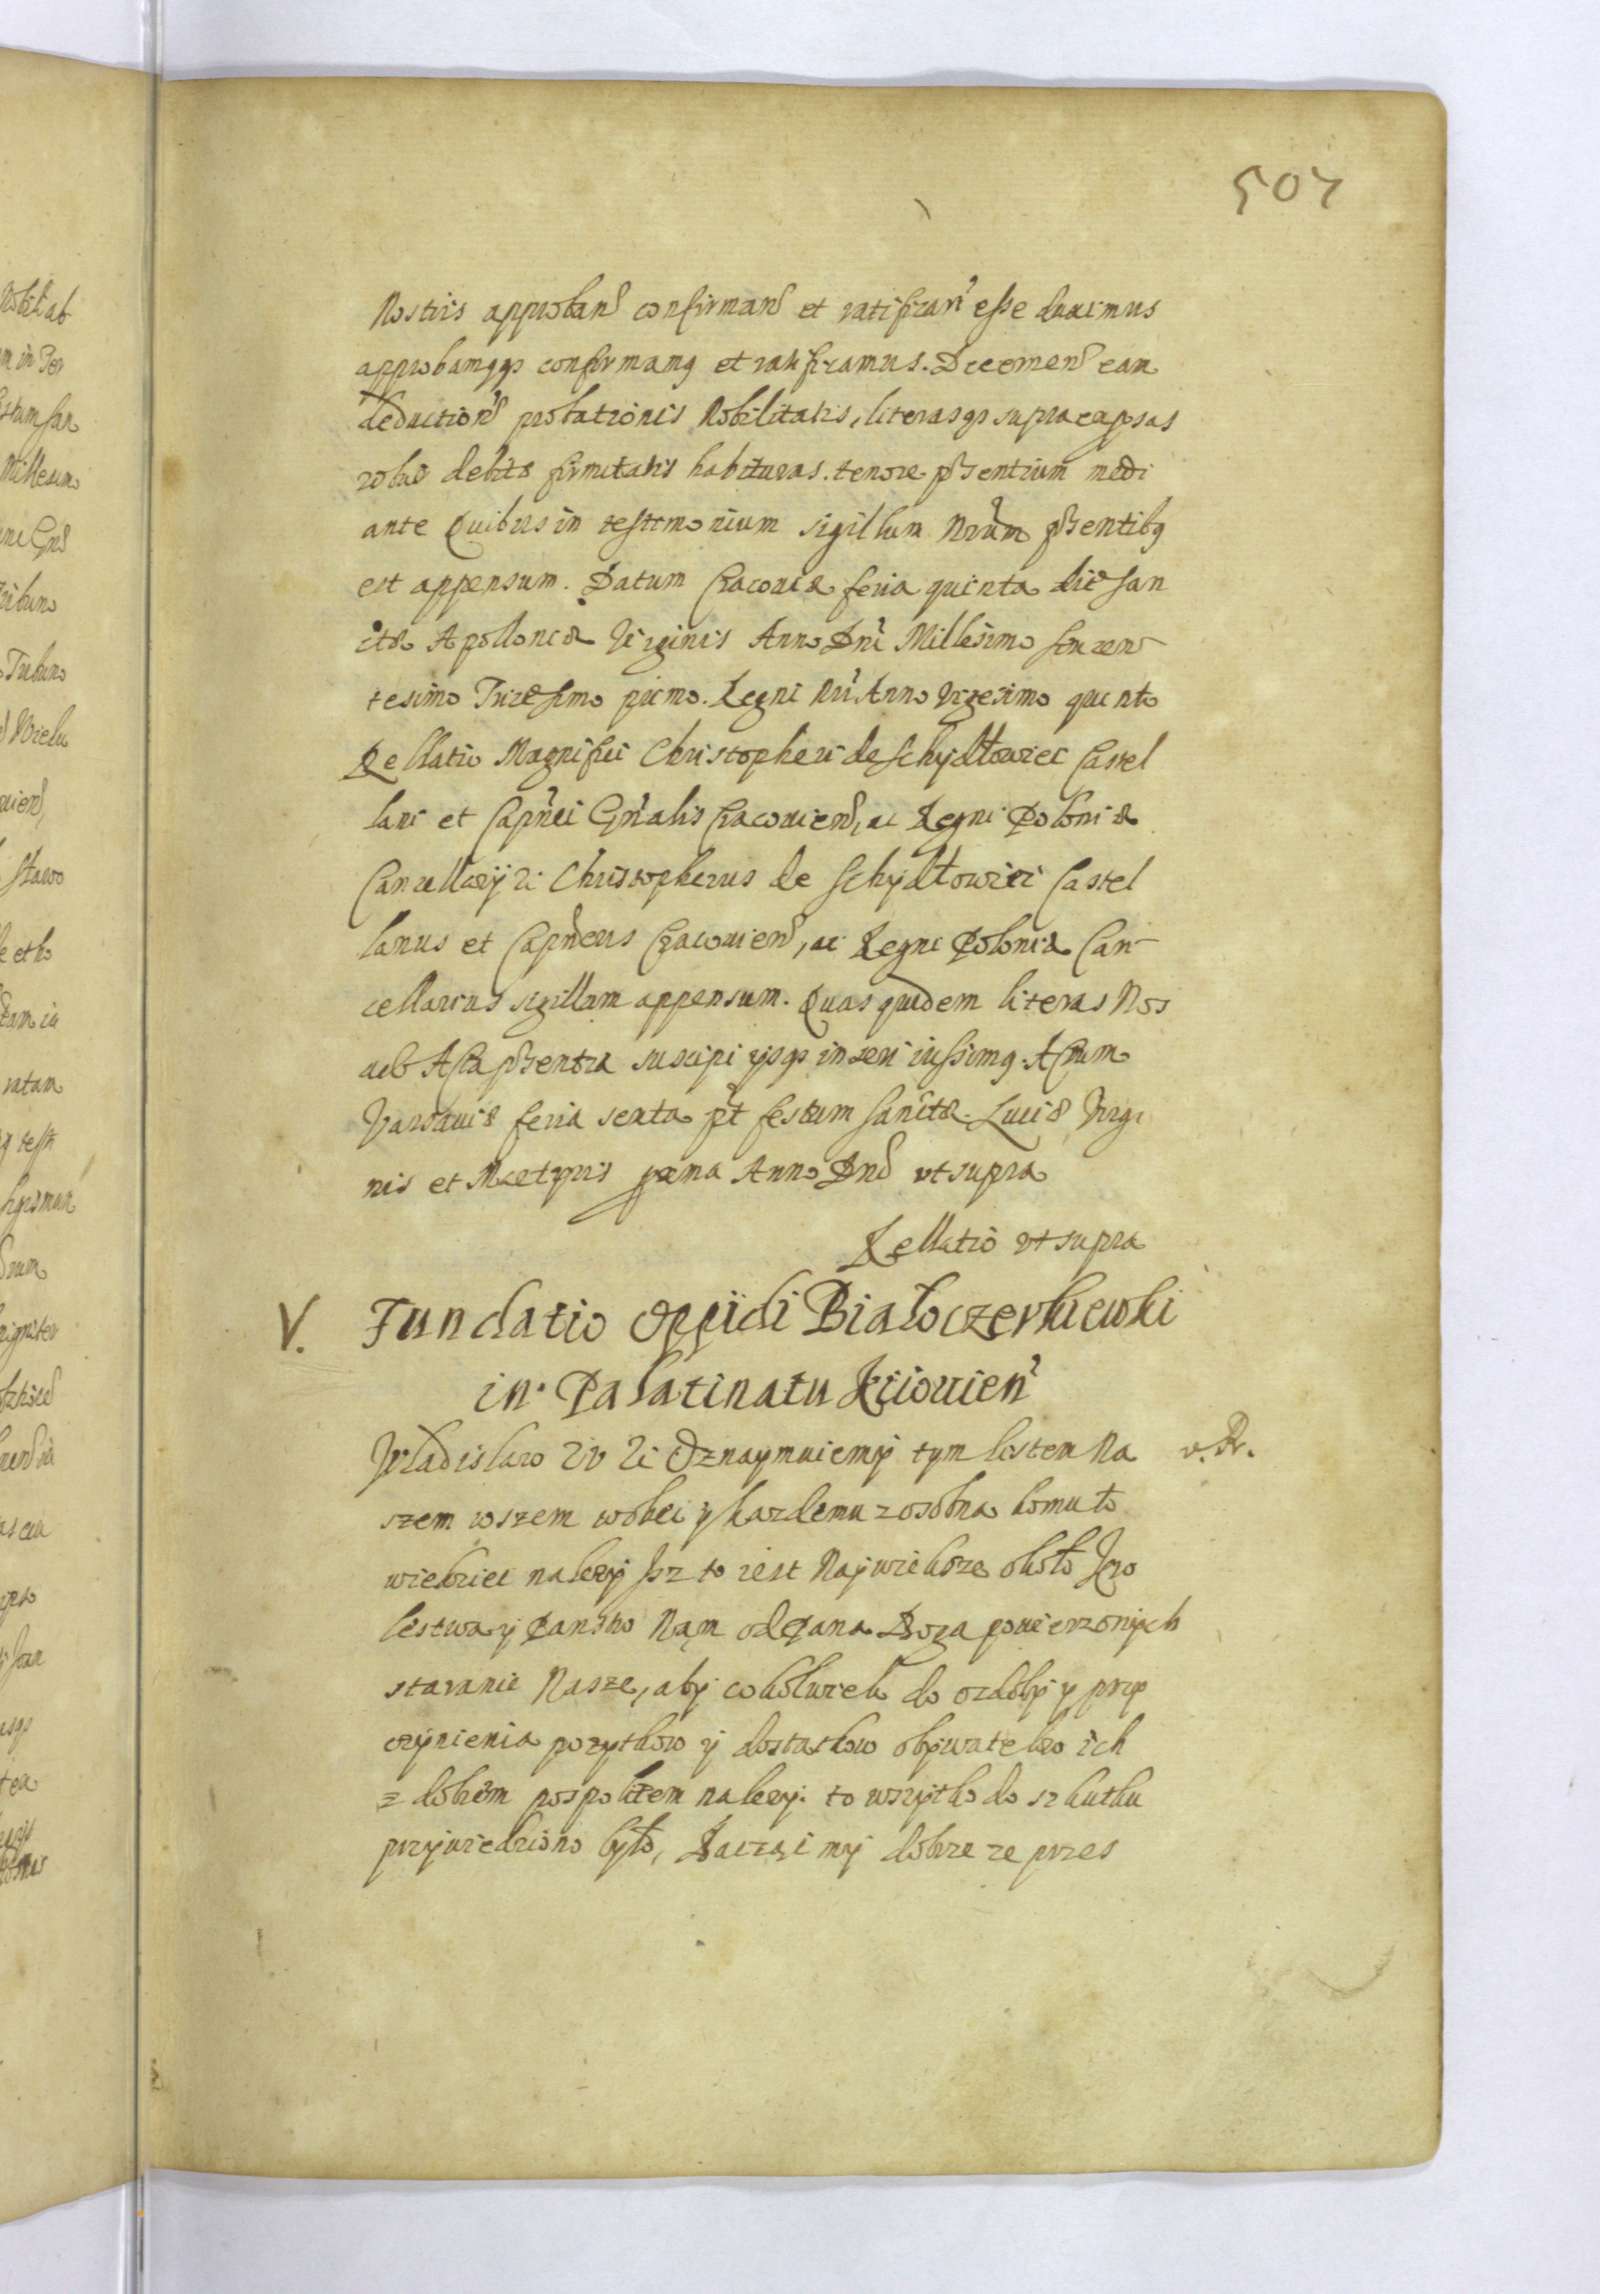 507
Nostris approban confirman et ratifican esse duximus
approbamusqs confirmamq et ratificamus. Decernen ean
deduction probationis Nobilitatis, literasqs supraexpsas
robur debitæ firmitatis habituras. tenore pñsentium medi
ante Quibus in testimonium sigillum Nrum pñsentibq
est appensum. Datum Cracoviæ feria quinta die San
ctæ Apolloniæ Virginis Anno Dni Millesimo Quinen
tesimo Tricesimo primo. Regni Nri Anno Vigesimo quinto
Rellatio Magnifici Christopheri de Schydłowiec Castel
lani et Capnei Gñralis Cracovien, ac Regni Poloniæ
Cancellarij Zi Christopherus de Schydłowiec Castel
lanus et Capneus Cracovien, ac Regni Poloniæ Can-
cellarius sigillum appensum. Quas quidem literas Nos
ad Acta pñsentia suscipi ijsqs inseri iussimq. Actum
Varsaviæ feria sexta pt festum Sanctæ Luciæ Virgi
nis et Martyris pxma Anno Dnd vt supra
Rellatio vt supra
V. Fundatio Oppidi Białoczerkiewki
in Palatinatu Kiiovien
Władislaw IV Zi Oznaymuiemy tym listem Na
v. Br.
szem wszem wobec y kazdemu z osobna komu to
wiedziec nalezy Jsz to iest Naywieksze około Kro
lestwa y Panstw Nąm od Pana Boga powierzonych
staranie Nasze, aby cokolwiek do ozdoby y przy
czynienia pozytkow y dostatkow obywatelow ich
z dobrem pospolitem nalezy. to wszytko do szkutku
przywiedziono było, Bacząc my dobrze ze przes